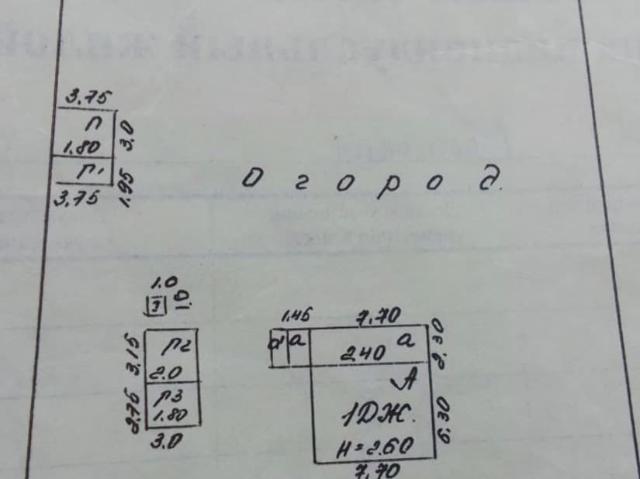 3.75
П
3.0
1.80
П1
1.95
3.75
О г о р о д.
1.0
1.0
3.15
П2
2.0
2.75
П3
1.80
3.0
1.45
7.70
а
а
2.30
2.40
А
1ДЖ.
6.30
H=2.60
7.70